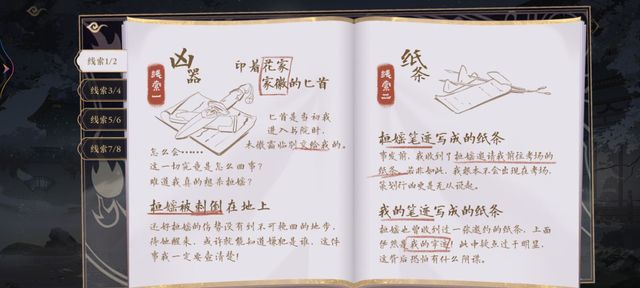 线索1/2
线索3/4
线索5/6
线索7/8
线索一
凶器
印着花家
家徽的匕首
匕首是当初我
进入书院时，
花傲霜临别交给我的。
怎么会……
这一切究竟是怎么回事？
难道我真的想杀桓媱？
桓媱被刺倒在地上
还好桓媱的伤势没有到不可挽回的地步，
待她醒来，或许就能知道嫌犯是谁，这件
事我一定要查清楚！
线索二
纸条
桓媱笔迹写成的纸条
事发前，我收到了桓媱邀请我前往考场的
纸条。若非如此，我根本不会出现在考场，
策划行凶更是无从说起。
我的笔迹写成的纸条
桓媱也曾收到过一张邀约的纸条，上面
俨然是我的字迹！此中疑点过于明显，
这背后恐怕有什么阴谋。